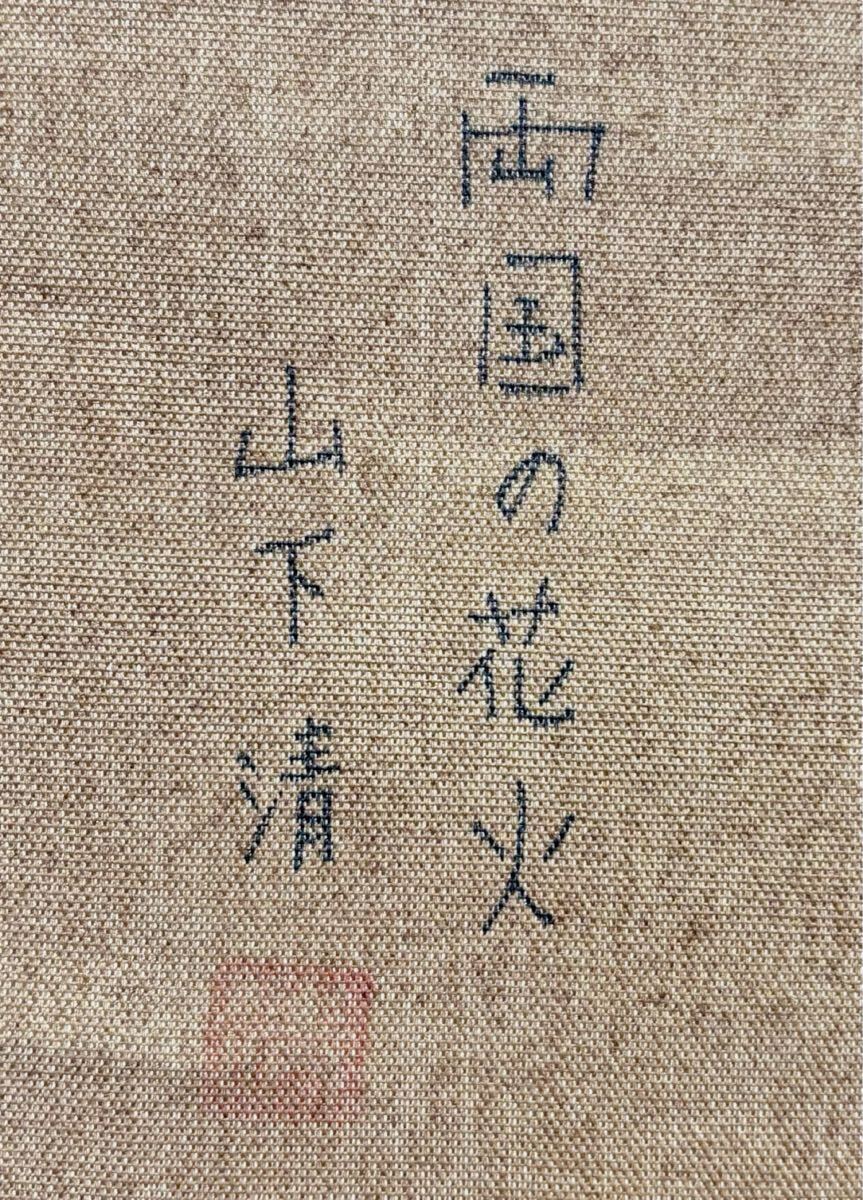 両国の花火
山下清